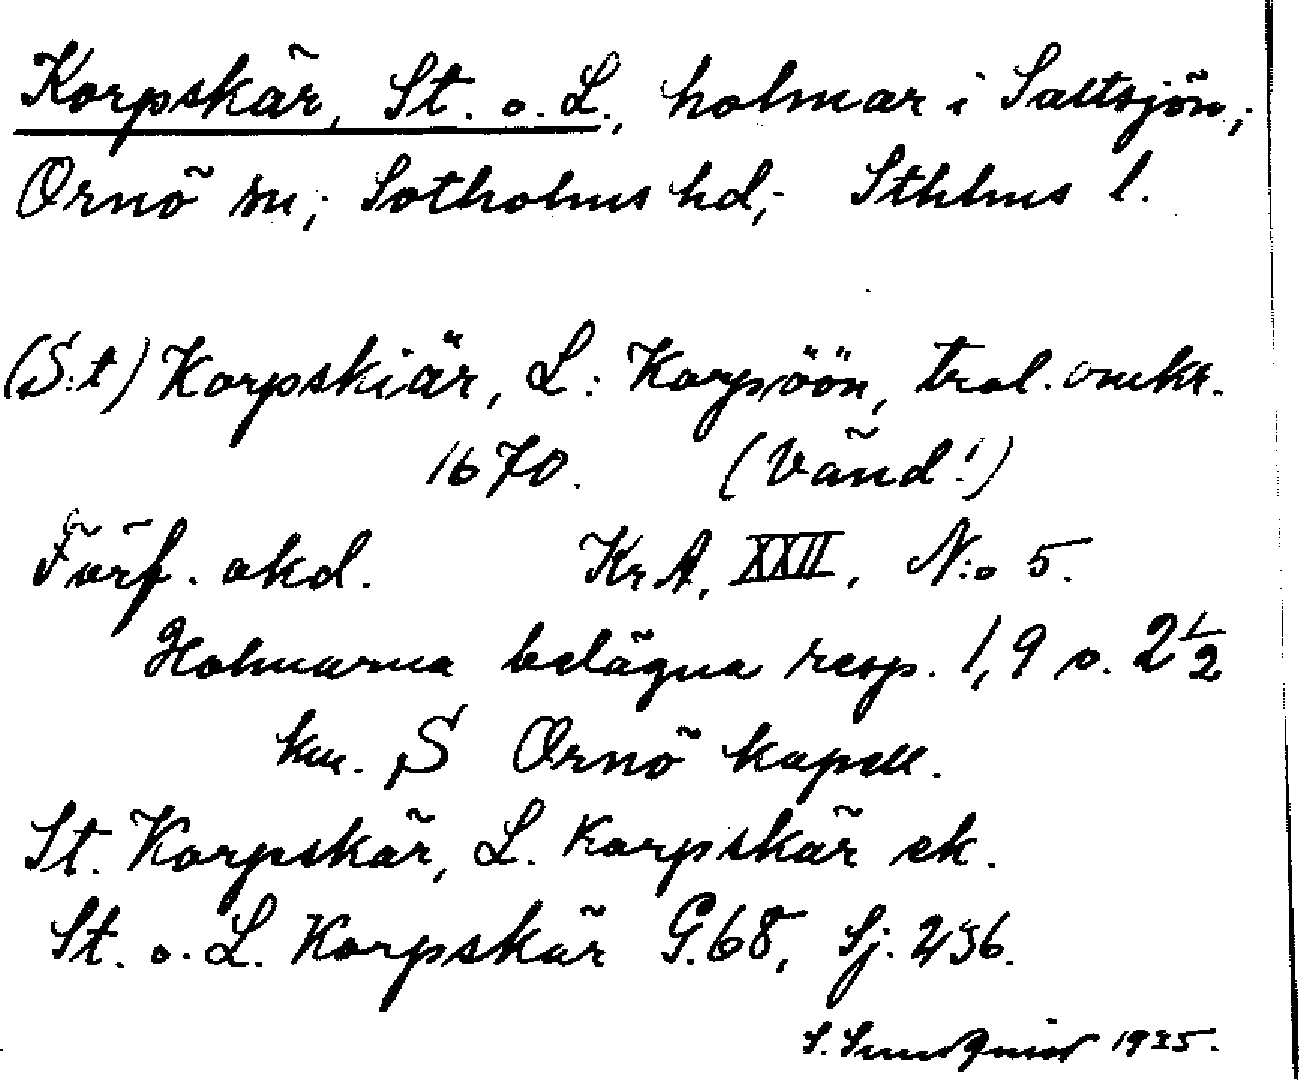 Korpskär, St. o. L., holmar i Saltsjön,;
Ornö sn,; Sotholms hd,; Sthlms l.
(S:t) Korpskiär, L: Korpöön, trol. omkr.
1670. (Vänd!)
Förf. okd. Kr A, XXII, N:o 5.
Holmarna belägna resp. 1,9 o. 2 1/2
km. S Ornö kapell.
St. Korpskär, L. Korpskär ek.
St. o. L. Korpskär G.68, Sj. 236.
S. Sundqvist 1935.